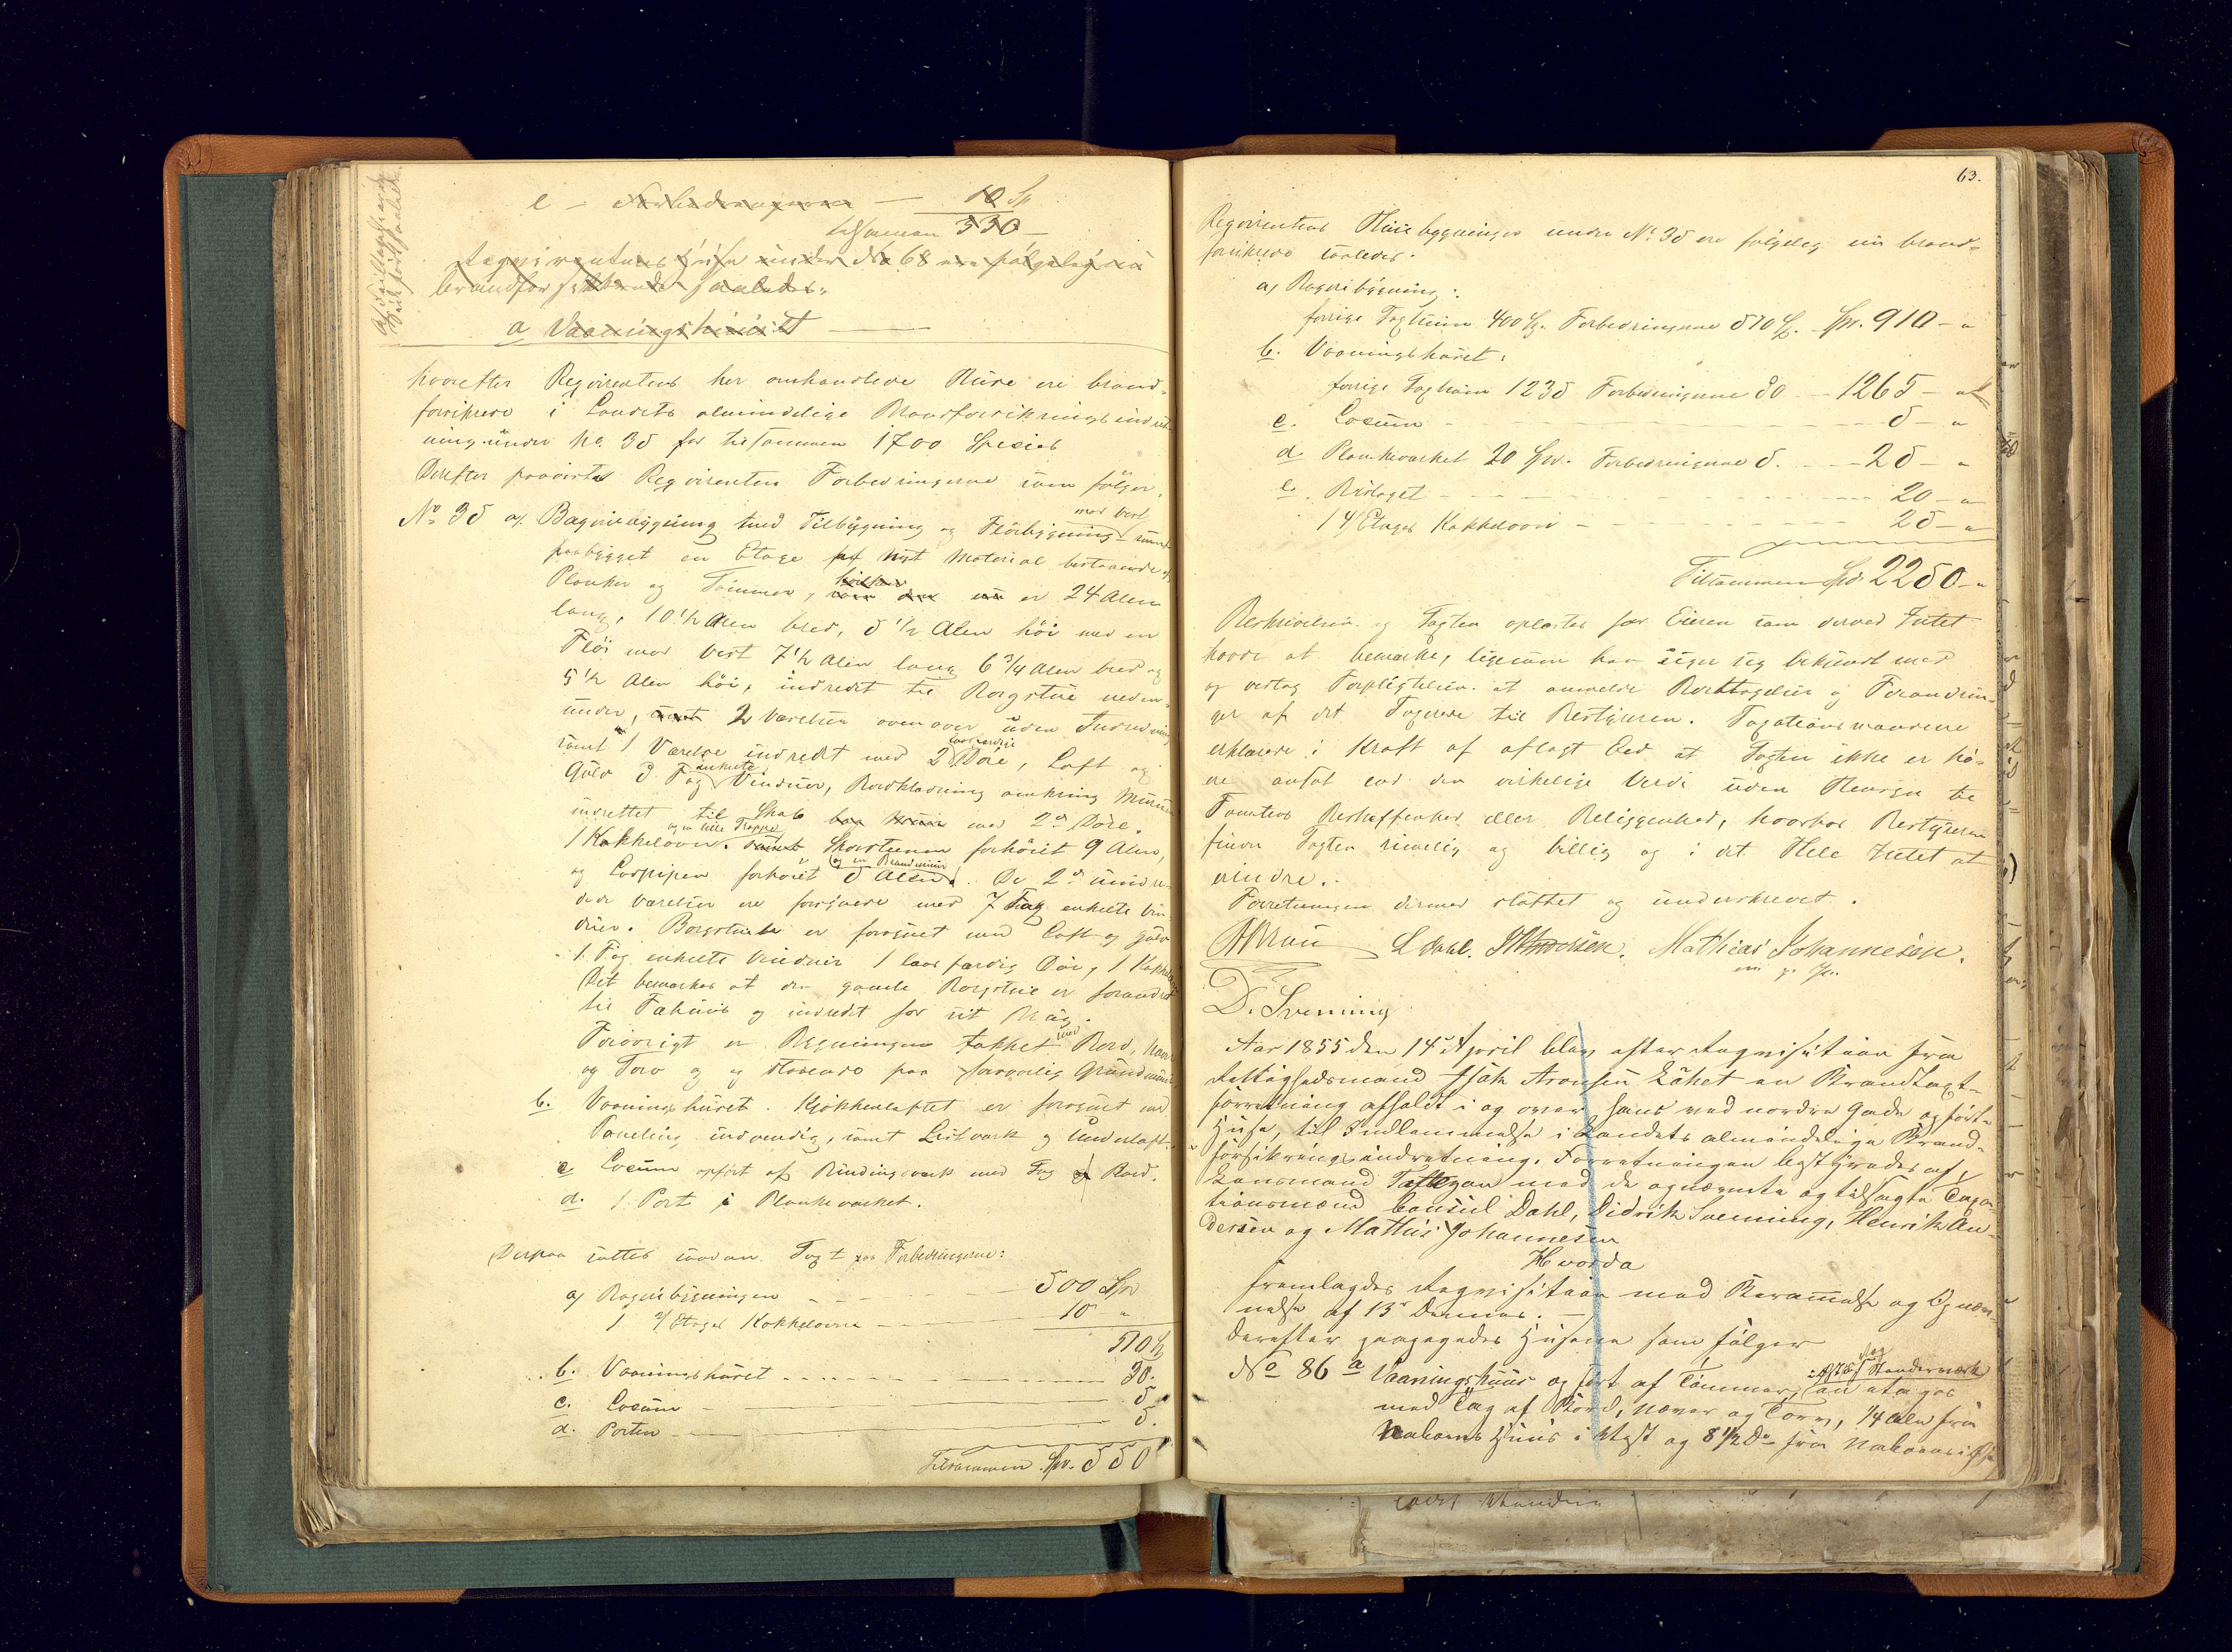 e - Forbedringerne - 10 Sp
tilsammen 530 -
Reqvirentens Huse under No 68 ere følgelig nu
brandforsikkrede saaledes:
a Vaaningshuuset
hvorefter Reqvirentens her omhandlede Huse ere brand-
forsikrede i Landets almindelige Brandforsikringsindret-
ning under No. 35 for tilsammen 1700 Species
Derefter paaviste Reqvirenten Forbedringerne som følger.
No 35 a. Bageribygning med Tilbygning og Fløibygning mod Vest
paabygget en Etage af nyt Material bestaaende af
Planker og Tømmer, er 24 Alen
lang, 10 1/2 Alen bred, 5 1/2 Alen høi med en
Fløi mod Vest 7 1/2 Alen lang 6 3/4 Alen bred og
5 1/2 Alen høi, indredet til Borgstue neden-
under, 2 Værelser ovenover uden Indredning
samt 1 Værelse indredet med 2 laasfærdige Døre, Loft og
Gulv 3 Fag enkelte Vinduer, Bordklædning omkring Muren
indrettet til Skab med 2de Døre.
1 Kakkelovn. og en lille Trappe Skorstenen forhøiet 9 Alen,
og Lospipen forhøiet 5 Alen og en Brandmuur. De 2de uindre-
dede Værelser ere forsynede med 7 Fag enkelte Vin-
duer. Borgstuen er forsynet med Loft og Gulv
1 Fag enkelte Vinduer 1 laasfærdig Dør, 1 Kakkelovn
Det bemærkes at den gamle Borgstue er forandret
til Fæhuus og indredet for sit Brug.
Forøvrigt er Bygningen tækket med Bord, Næver
og Torv og staaende paa forsvarlig Grundmuur.
b. Vaaningshuset. Kjøkkenloftet er forsynet med
Paneling indvendig, samt Listværk og Underloft.
c Locum opført af Bindingsværk med Tag af Bord.
d. 1 Port i Plankeværket.
Derpaa sattes saadan Taxt paa Forbedringerne:
a, Bageribygningen - 500 Spd
1 2/Etages Kakkelovn - 10 "
510
b. Vaaningshuset - 30.
c. Locum - 5
d. Porten - 5.
Tilsammen Spd. 550
63.
Reqvirentens Huusbygninger under No. 35 ere følgelig nu brand-
forsikrede saaledes:
a, Bageribygning:
forrige Taxtsum 400 Sp. Forbedringerne 510 Sp. Spd. 910 - "
b. Vaaningshuset:
forrige Taxtsum 1235 Forbedringerne 30 - 1265 - "
c. Locum - 5 - "
d. Plankeværket 20 Spd. Forbedringerne 5. - 25 - "
e. Bislaget - 20 - "
1 4/Etages Kakkelovn - 25 - "
Tilsammen Spd. 2250 - "
Beskrivelsen og Taxten oplæstes for Eieren som derved Intet
havde at bemærke, ligesom han siger sig bekjendt med
og vedtog Forpligtelsen at anmelde Borttagelser og Forandrin-
ger af det Taxerede til Bestyreren. Taxationsmændene
erklærede i Kraft af aflagt Eed at Taxten ikke er høi-
ere ansat end den virkelige Verdi uden Hensyn til
Tomtens Beskaffenhed eller Beliggenhed, hvorhos Bestyreren
finder Taxten rimelig og billig og i det Hele Intet at
erindre.
Forretningen dermed sluttet og underskrevet.
L Dahl. Mathias Johannesen.
D. Svenning
Aar 1855 den 14de April blev efter Reqvisition fra
Rettighedsmand Isak Aronsen holdt en Brandtaxt-
forretning afholdt i og over hans ved nordre Gade opførte
Huse, til Indlemmelse i Landets almindelige Brand-
forsikringsindretning. Forretningen bestyredes af
Lensmand med de opnævnte og tilsagte Taxa-
tionsmænd Consul Dahl, Didrik Svenning, Henrik An-
dersen og Mathis Johannesen
Hvorda
fremlagdes Reqvisition med Berammelse og Opnæv-
nelse af 13de Dennes.
Derefter paavistes Husene som følger
No 86 a Vaaningshuus opført af Tømmer, en etages
med Tag af Bord, Næver og Torv, 1/4 Alen fra
Naboens Huus i Vest og 8 1/2 Do fra Naboens i Øst